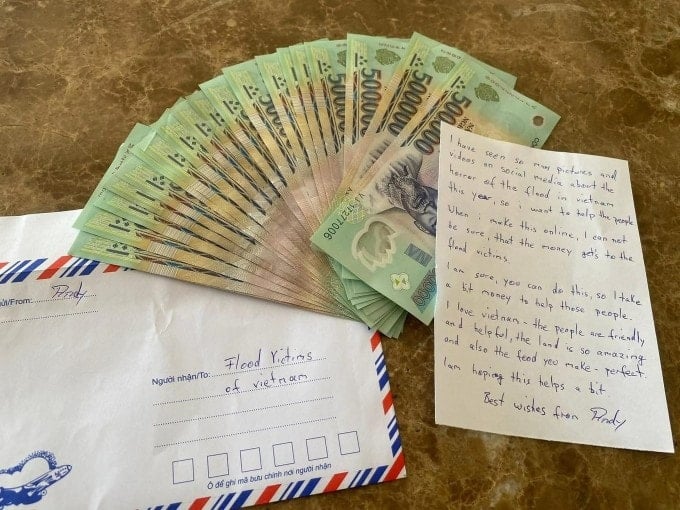 500000
500000
500000
500000
VN
I have seen so many pictures and
videos on social media about the
horror of the flood in vietnam
this year, so i want to help the people.
When i make this online, I can not
be sure, that the money get's to the
flood victims.
I am sure, you can do this, so I take
a bit money to help those people.
I love vietnam - the people are friendly
and helpful, the land is so amazing
and also the food you make - perfect.
I am hoping this helps a bit
Best wishes from
/From:
Người nhận/To: Flood Victims
of Vietnam
Ô để ghi mã bưu chính nơi người nhận